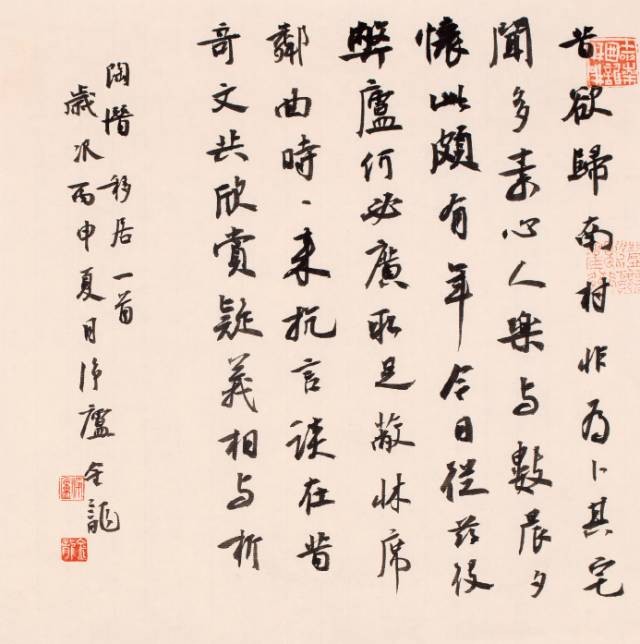 昔欲歸南村非為卜其宅
聞多素心人樂与數晨夕
懷此頗有年今日從茲役
弊廬何必廣取足蔽牀席
鄰曲時〻来抗言談在昔
奇文共欣賞疑義相与析
陶潛移居一首
歲次丙申夏日淨廬金龍
淨廬
金龍